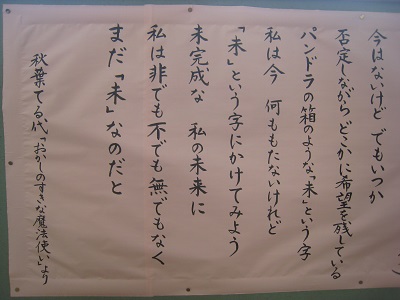 今はないけど でもいつか
否定しながら どこかに希望を残している
パンドラの箱のような「未」という字
私は今 何ももたないけれど
「未」という字にかけてみよう
未完成な 私の未来に
私は非でも不でも無でもなく
まだ「未」なのだと
秋葉てる代「おかしのすきな魔法使い」より